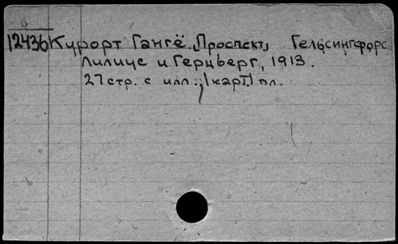 12436 Курорт Гангё. Проспект, Гельсингфорс
Лилиус и Герцберг, 1913.
27 стр. с илл.; 1 карт; 1 пл.